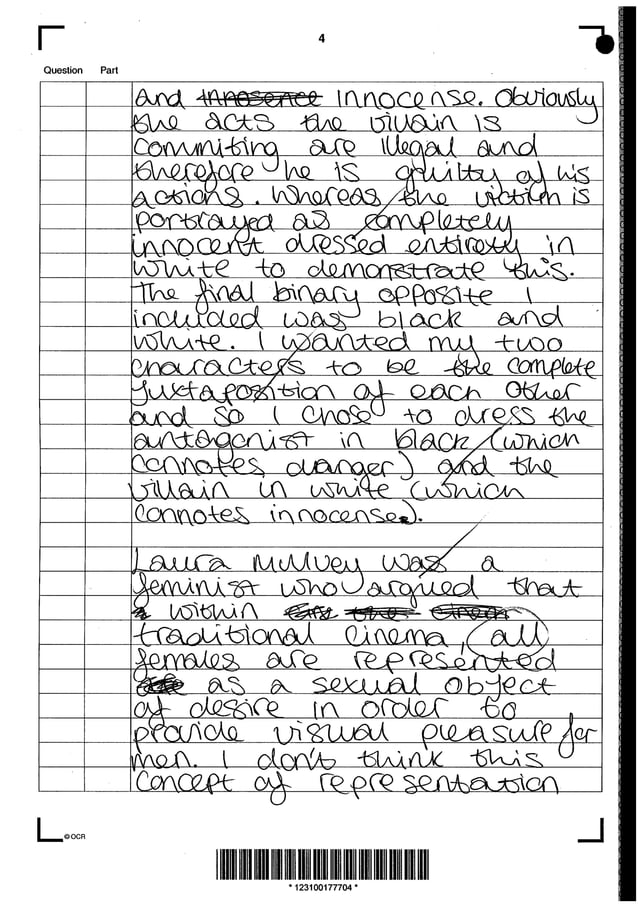 4
Question Part
and innosence innocense. Obviously
the acts the villain is
commiting are illegal and
therefore he is guilty of his
actions. Whereas the victim is
portrayed as completely
innocent dressed entirely in
white to demonstrate this.
The final binary opposite I
included was black and
white. I wanted my two
characters to be the complete
juxtaposition of each other
and so I chose to dress the
antagonist in black (which
connotes danger) and the
villain in white (which
connotes innocense).
Laura Mulvey was a
feminist who argued that
within
traditional cinema, all
females are represented
as a sexual object
of desire in order to
provide visual pleasure for
men. I don't think this
concept of representation
© OCR
* 123100177704 *